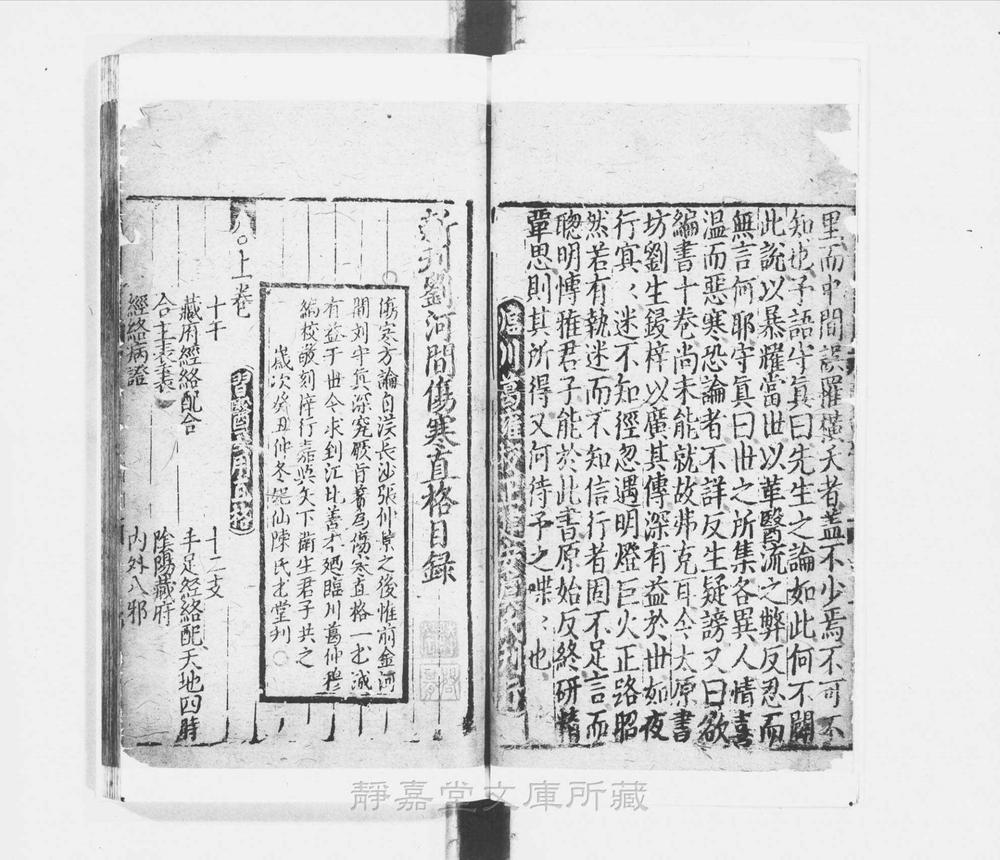 里而中間誤罹橫夭者蓋不少焉不可不
知也予語守眞曰先生之論如此何不闢
此說以暴耀當世以革醫流之弊反忍而
無言何耶守眞曰世之所集各異人情喜
温而惡寒恐論者不詳反生疑謗又曰欲
編書十卷尚未能就故弗克耳今太原書
坊劉生鋟梓以廣其傳深有益於世如夜
行寘〻迷不知徑忽遇明燈巨火正路昭
然若有執迷而不知信行者固不足言而
聦明博雅君子能於此書原始反終研精
覃思則其所得又何待予之喋〻也
臨川葛雍
新刋劉河間傷寒直格目録
傷寒方論自漢長沙張仲景之後惟前金河
間刘守眞深究厥旨著爲傷寒直格一书誠
有益于世今求到江北善本廼臨川葛仲穆
編校敬刻梓行嘉與天下衛生君子共之
歲次癸丑仲冬妃仙陳氏书堂刋
上卷
習醫要用直格
十干
十二支
藏府經絡配合
手足經絡配天地四時
合主表裏
陰陽藏府
經絡病證
内外八邪
靜嘉堂文庫所藏